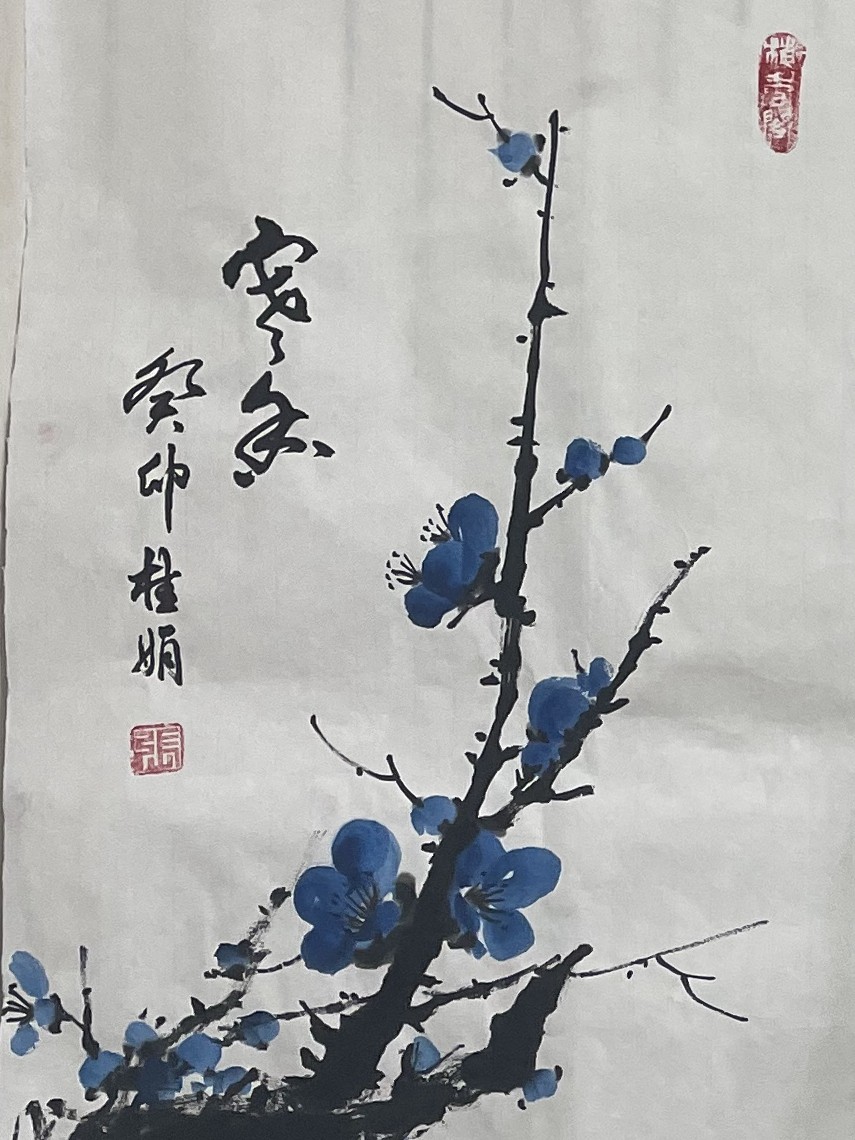 寒香
癸卯桂娟
張